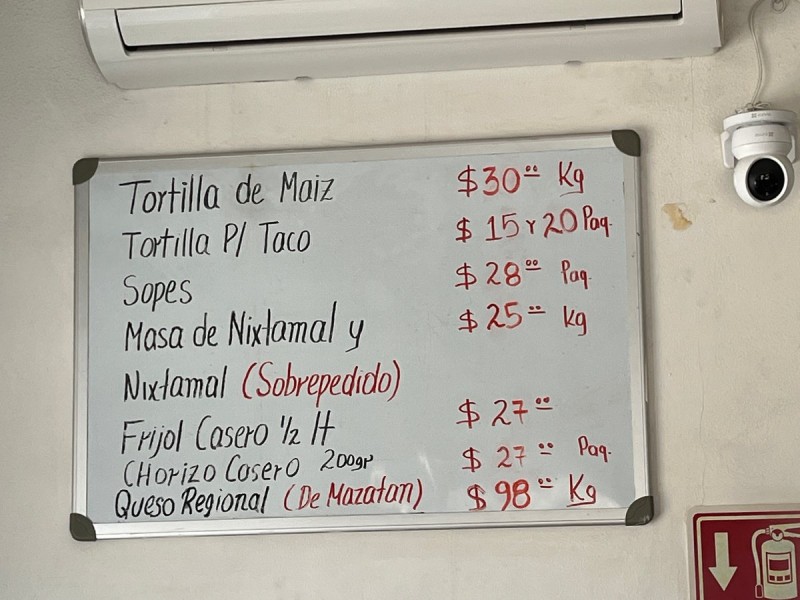 Tortilla de Maiz $30.00 Kg
Tortilla P/ Taco $ 15 Y 20 Paq.
Sopes $ 28.00 Paq.
Masa de Nixtamal y $ 25.00 Kg
Nixtamal (Sobrepedido)
Frijol Casero 1/2 lt $ 27.00
CHorizo Casero 200gr $ 27.00 Paq.
Queso Regional (De Mazatan) $98.00 Kg